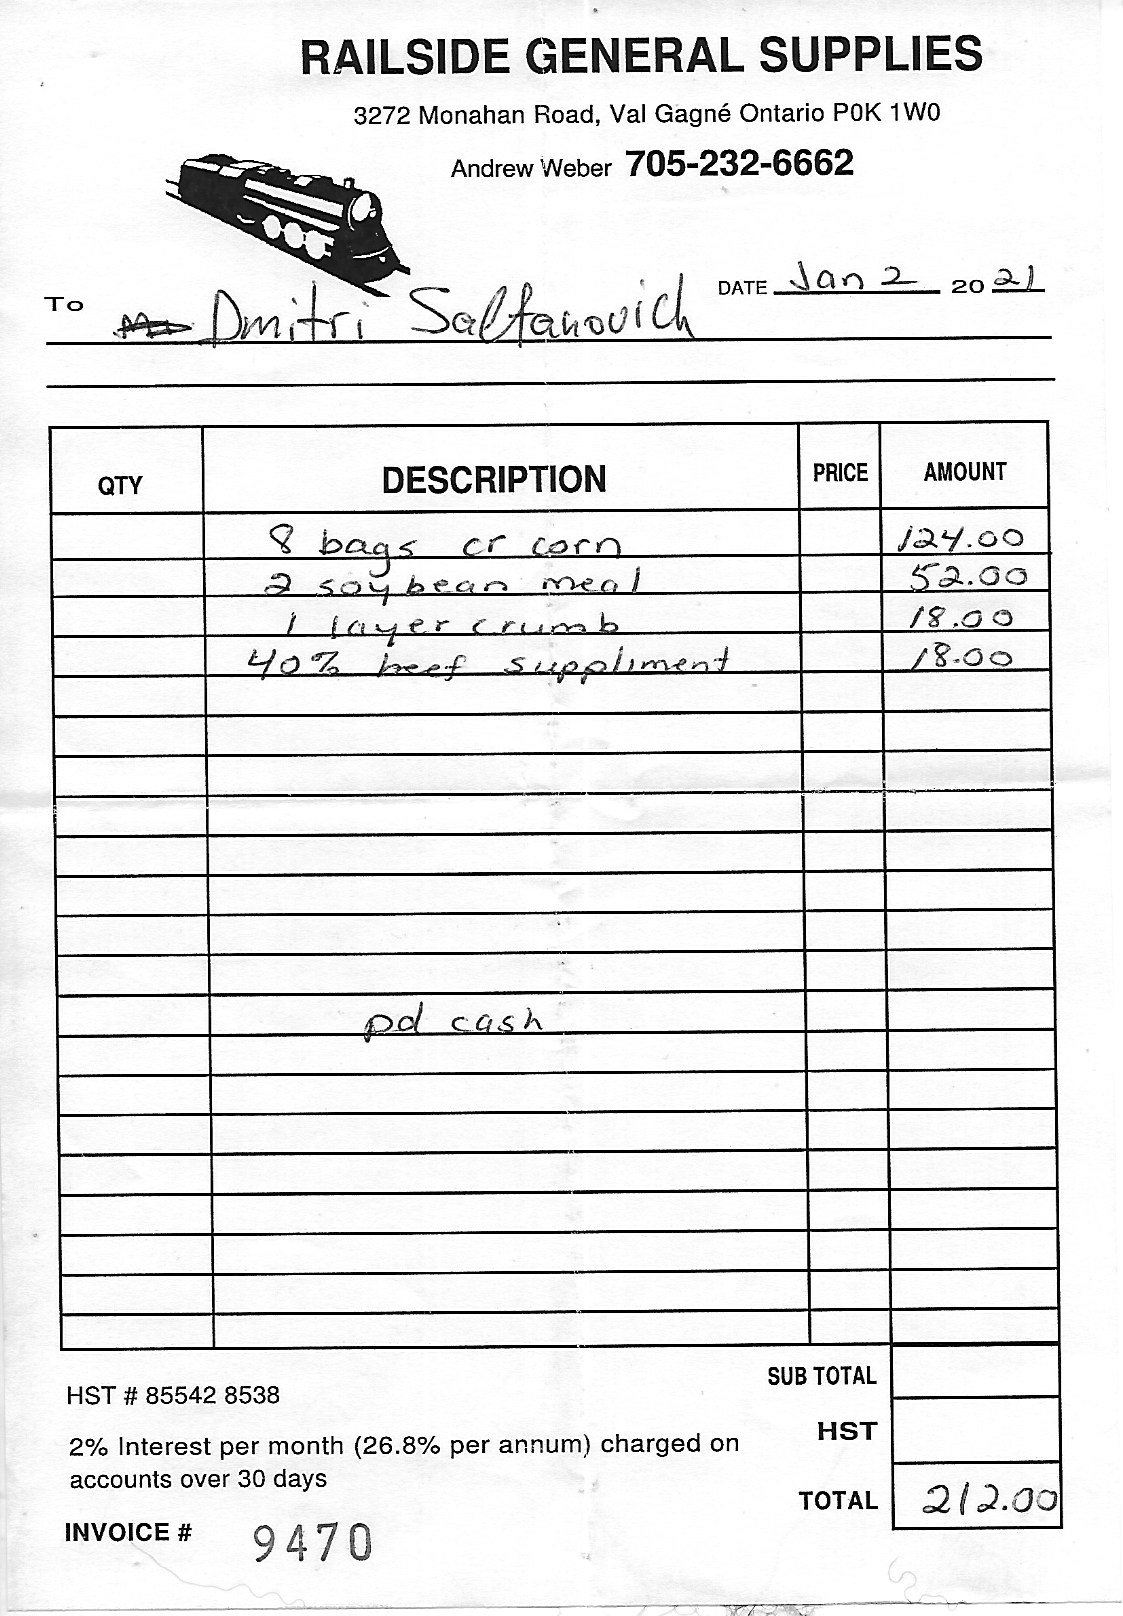 RAILSIDE GENERAL SUPPLIES
3272 Monahan Road, Val Gagné Ontario P0K 1W0
Andrew Weber 705-232-6662
DATE Jan 2 20 21
To Dmitri Saltanovich
QTY DESCRIPTION PRICE AMOUNT
8 bags cr corn 124.00
2 soybean meal 52.00
1 layer crumb 18.00
40% beef suppliment 18.00
pd cash
SUB TOTAL
HST # 85542 8538
HST
2% Interest per month (26.8% per annum) charged on
accounts over 30 days
TOTAL 212.00
INVOICE # 9470